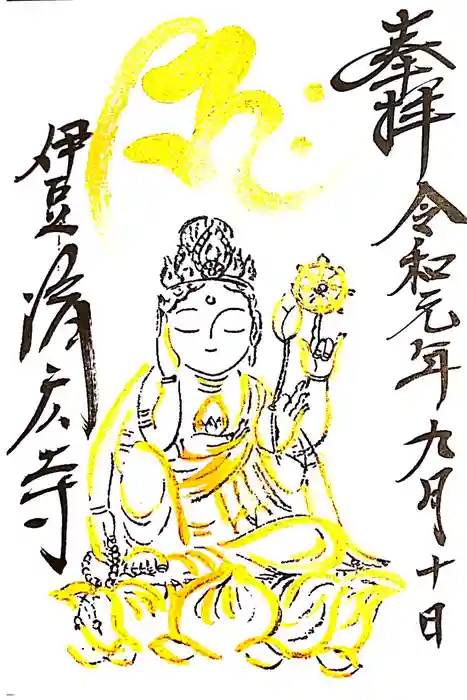 奉拝
令和元年九月十日
伊豆 済広寺